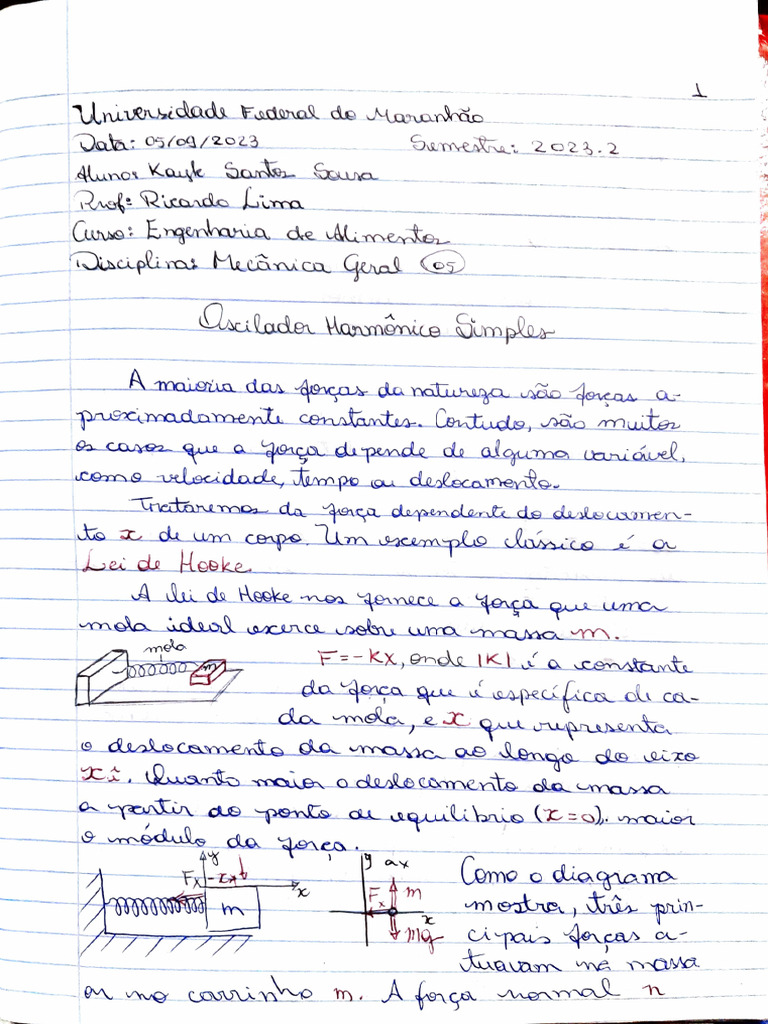 1
Universidade Federal do Maranhão
Data: 05/09/2023 Semestre: 2023.2
Aluno: Kayk Santos Sousa
Prof: Ricardo Lima
Curso: Engenharia de Alimentos
Disciplina: Mecânica Geral 05
Oscilador Harmônico Simples
A maioria das forças da natureza são forças a-
proximadamente constantes. Contudo, são muitos
os casos que a força depende de alguma variável,
como velocidade, tempo ou deslocamento.
Trataremos da força dependente do deslocamen-
to x de um corpo. Um exemplo clássico é a
Lei de Hooke.
A lei de Hooke nos fornece a força que uma
mola ideal exerce sobre uma massa m.
mola
m
F = -KX, onde |K| é a constante
da força que é específica de ca-
da mola, e x que representa
o deslocamento da massa ao longo do eixo
xî. Quanto maior o deslocamento da massa
a partir do ponto de equilíbrio (x=0). maior
o módulo da força.
y
Fx -x
x
m
y ax
Fx m
x
mg
Como o diagrama
mostra, três prin-
cipais forças a-
tuavam na massa
ou no carrinho m. A força normal n